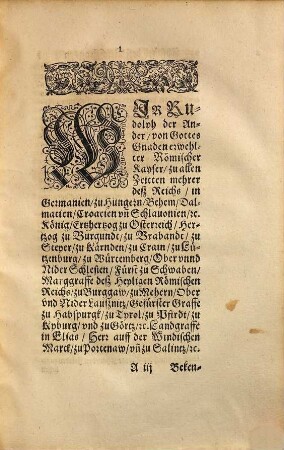 1.
WIR Ru-
dolph der An-
der / von Gottes
Gnaden erwehl-
ter Römischer
Kayser / zu allen
Zeitten mehrer
deß Reichs / in
Germanien / zu Hungern / Behem / Dal-
matien / Croatien vñ Schlauonien / ꝛc.
König / Ertzhertzog zu Osterreich / Her-
tzog zu Burgundt / zu Brabandt / zu
Steyer / zu Kärnden / zu Crain / zu Lü-
tzenburg / zu Würtemberg / Ober vnnd
Nider Schlesien / Fürst zu Schwaben /
Marggraffe deß Heyligen Römischen
Reichs / zu Burggaw / zu Mehern / Ober
vnd Nider Laußnitz / Gefürster Graffe
zu Habspurgk / zu Tyrol / zu Pfirdt / zu
Kyburg / vnd zu Görtz / ꝛc. Landgraffe
in Elsas / Herr auff der Windischen
Marck / zu Portenaw / vñ zu Salintz / ꝛc.
A iij Beken-